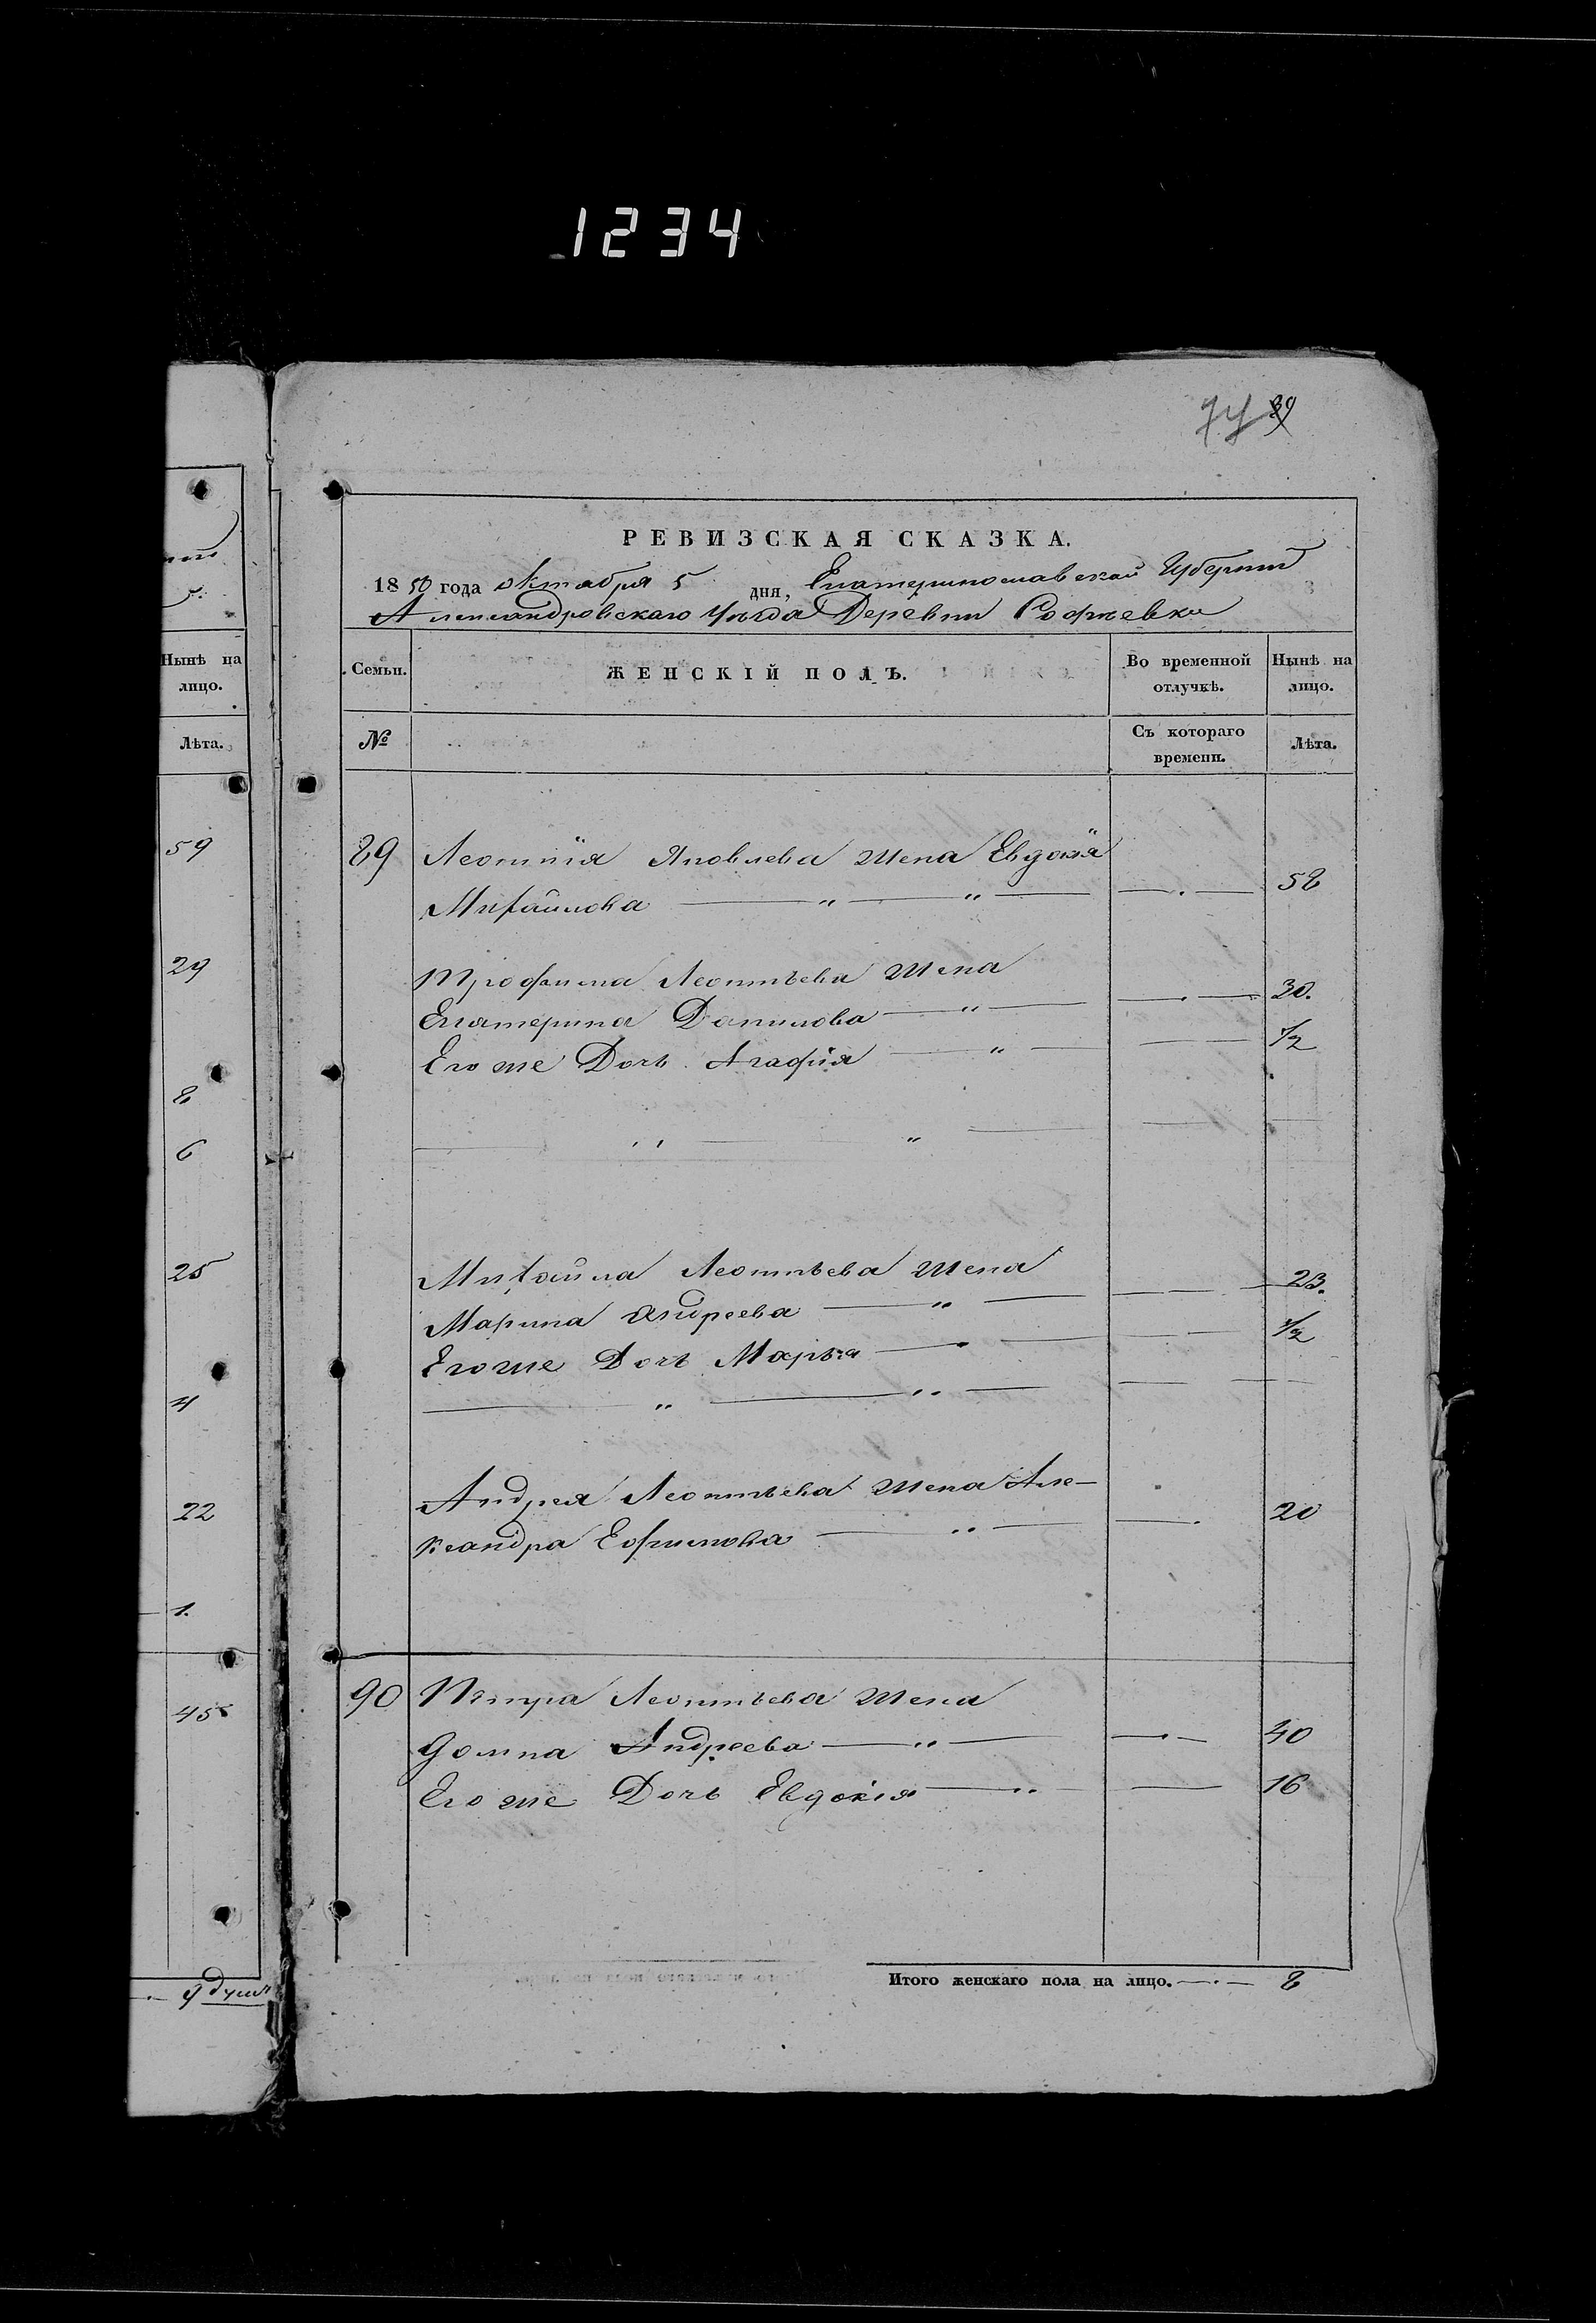 1234
74 39
РЕВИЗСКАЯ СКАЗКА.
1850 года октября 5 дня, Екатеринославской Губернии
Александровскаго Уѣзда Деревни
Нынѣ на лицо.
Лѣта.
59
29
8
6
25
4
22
1.
45
9 душъ
Семьи. ЖЕНСКІЙ ПОЛЪ. Во временной отлучкѣ. Нынѣ на лицо.
№ Съ котораго времени. Лѣта.
89 Леонтія Яковлева жена Евдокія
Михайлова — " — " — — . — 58
Трофима Леонтьева жена
Екатерина Данилова — " — — . — 30.
Его же Дочь Агафія — " — — — 1/2
— " — " — —
Михайла Леонтьева жена
Марина Андреева — " — — . — 23.
Его же Дочь Марья — " — — . — 1/2
— " — " — — —
Андрея Леонтьева жена Але-
ксандра Ефимова — " — — . 20
90 Петра Леонтьева жена
Домна Андреева — " — — . — 40
Его же Дочь Евдокія — " — 16
Итого женскаго пола на лицо. — . — 8